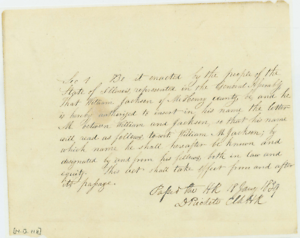 Sec 1 Be it enacted by the people of the
State of Illinois represented in the General Assembly
That William Jackson of McHenry county, be and he
is hereby authorized to insert in his name, the letter
M. between William and Jackson, so that his name
will read as follows, to wit William M Jackson; by
which name he shall hereafter be known and
designated by and from his fellows, both in law and
equity. This act shall take effect from and after
its passage.
Passed the H.R.